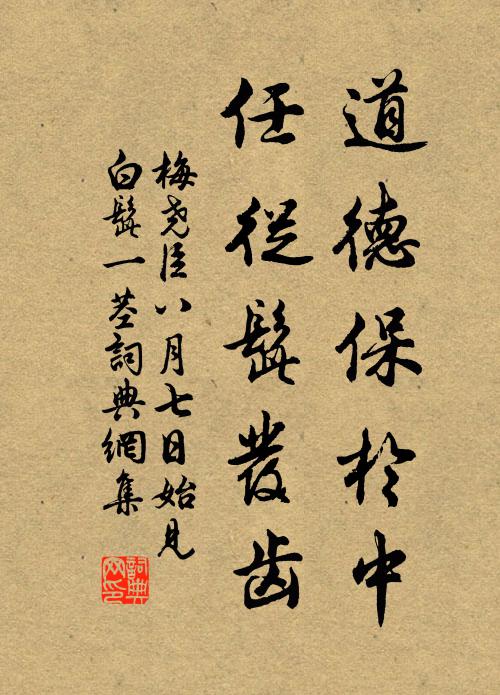 道德保於中
任從髭發齒
梅堯臣八月七日始見
白髭一莖詞典網集
詞典
网印